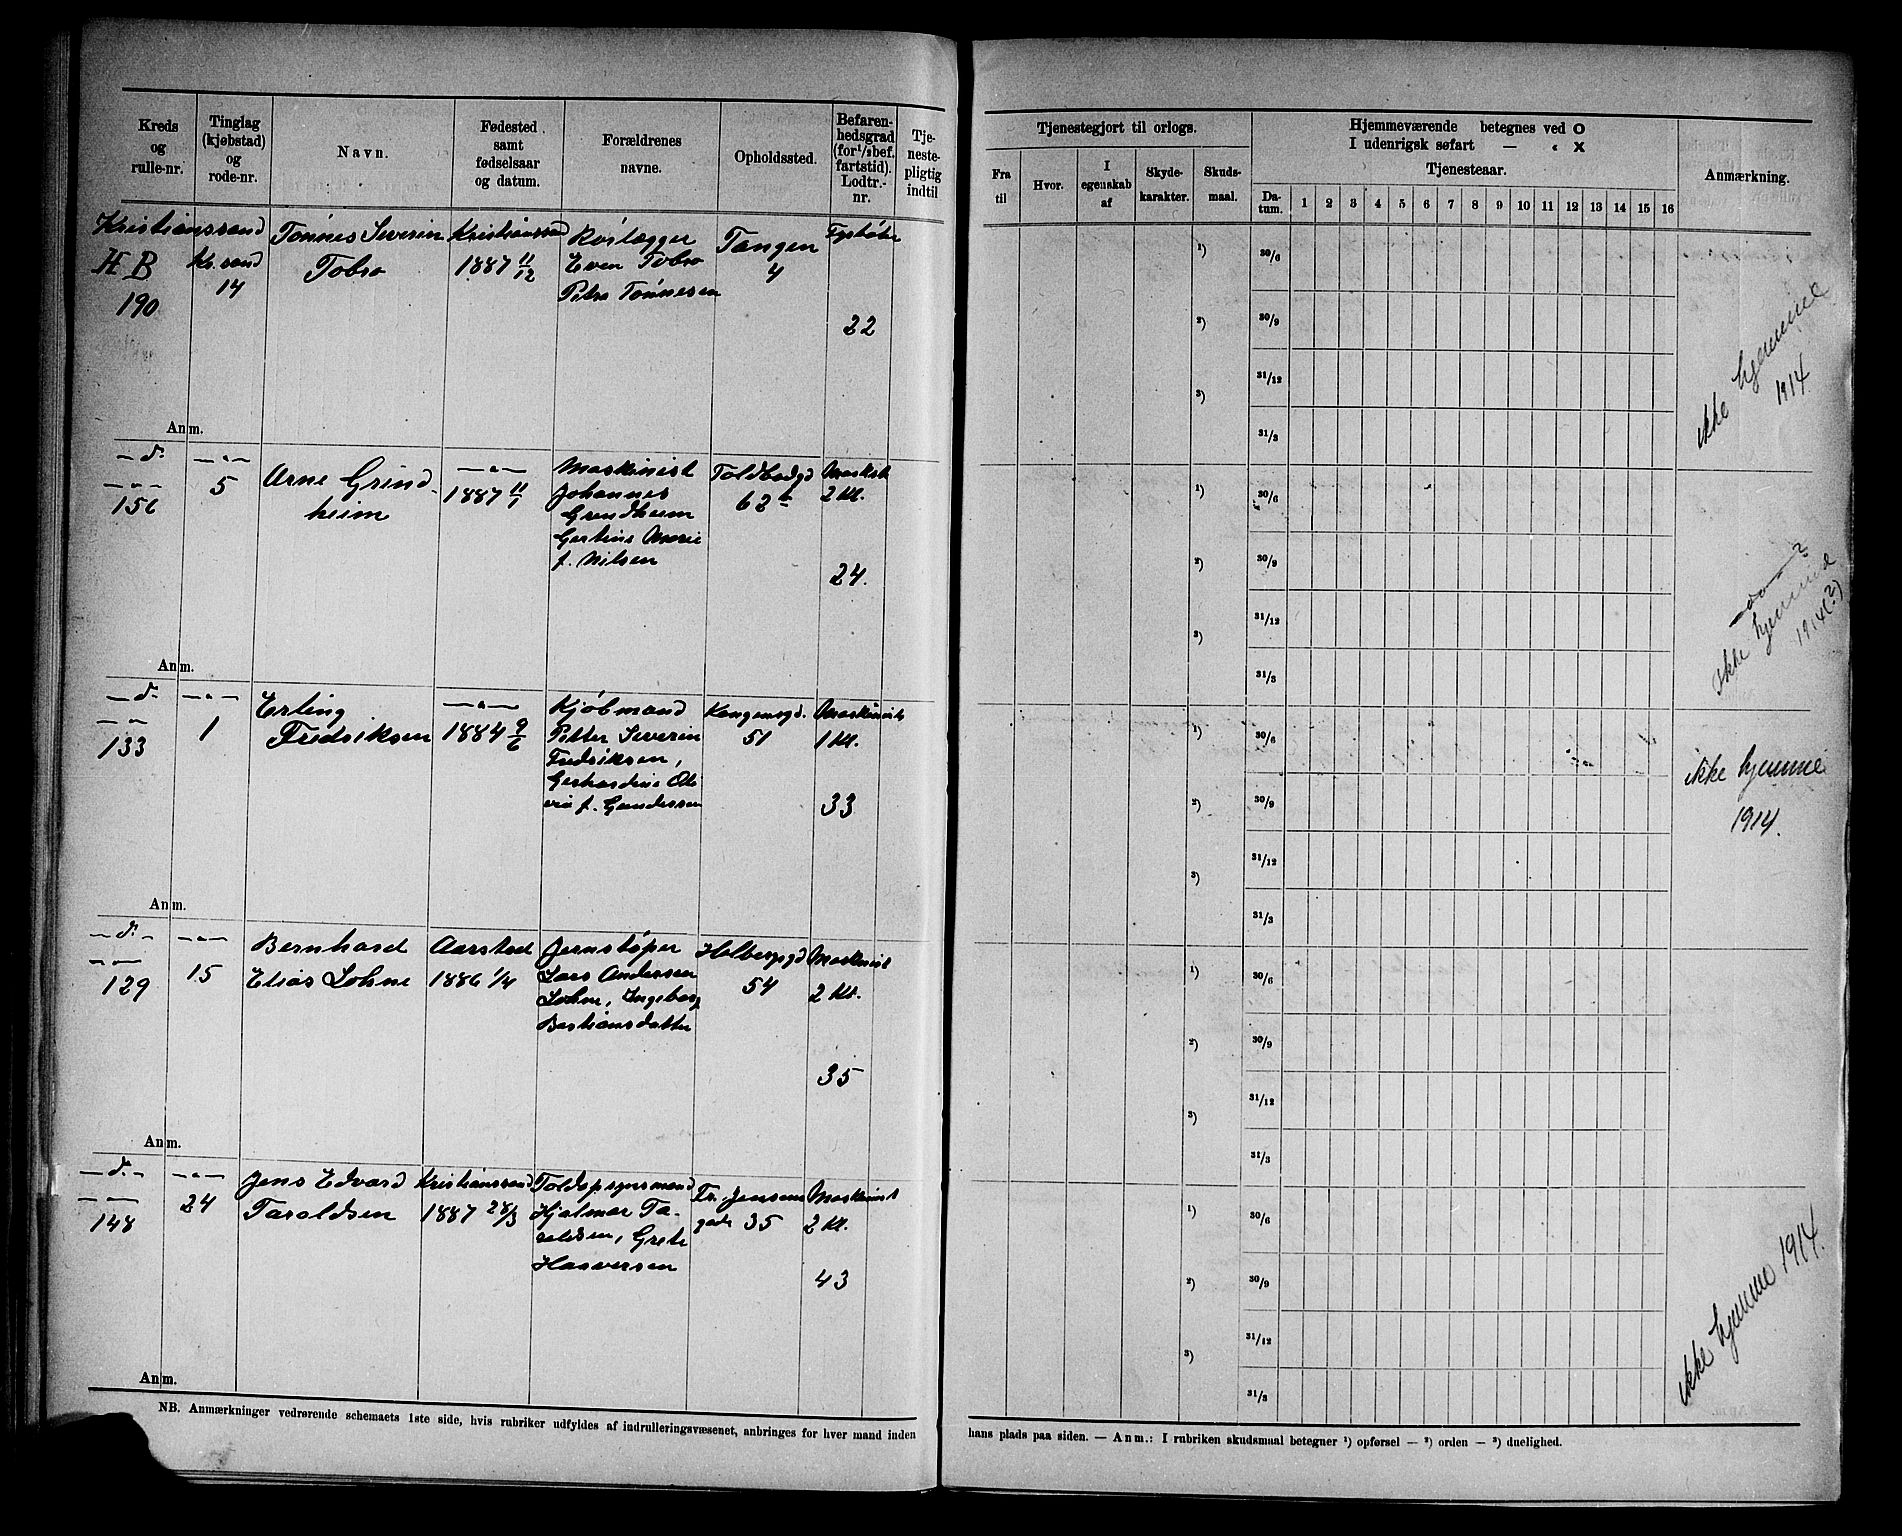 Kreds og rulle-nr.
Tinglag (kjøbstad) og rode-nr.
Navn.
Fødested samt fødselsaar og datum.
Forældrenes navne.
Opholdssted.
Befaren-hedsgrad (for 1/2 bef. fartstid). Lodtr.-nr.
Tje-neste-pligtig indtil
Tjenestegjort til orlogs.
Fra til
Hvor.
I egenskab af
Skyde-karakter.
Skuds-maal.
Hjemmeværende betegnes ved O
I udenrigsk søfart — " X
Tjenesteaar.
Da-tum.
1 2 3 4 5 6 7 8 9 10 11 12 13 14 15 16
Anmærkning.
Kristianssand
H B
190
Kr.sand
14
Tønnes Severin
Tobro
Kristianssand
1887 11/12
Even Tobro
Petra Tønnesen
Tangen
4
Fyrbøter
22
1) 30/6
2) 30/9
31/12
3)
31/3
ikke hjemme
1914
Anm.
— d. —
— " —
156
— " —
5
Arne Grind-
heim
— " —
1887 11/1
Maskinist
Johannes
Grindheim
Gertine Marie
f. Nilsen
Toldbodgd
62 b
Maskist
2 Kl.
24.
1) 30/6
2) 30/9
31/12
3)
31/3
— do — ?
ikke hjemme
1914(?)
Anm.
— d. —
— " —
133
— " —
1
Erling
Fredriksen
— " —
1884 9/6
Kjøbmand
Petter Severin
Fredriksen,
Gerhardine Oli-
via f. Gundersen
Kongensgd.
51
Maskinist
1 Kl.
33
1) 30/6
2) 30/9
31/12
3)
31/3
ikke hjemme
1914.
Anm.
— d. —
— " —
129
— " —
15
Bernhard
Elias Lohne
Aarstad
1886 1/4
Jernstøper
Lars Andersen
Lohne, Ingeborg
Bastiansdatter
Holbergsgd
54
Maskinist
2 Kl.
35
1) 30/6
2) 30/9
31/12
3)
31/3
Anm.
— d. —
— " —
148
— " —
24
Jens Edvard
Taraldsen
Kristianssand
1887 28/3
Toldopsynsmand
Hjalmar Ta-
raldsen, Grete
Haaversen
Fr. Jensens
gade 35
Maskinist
2 Kl.
43
1) 30/6
2) 30/9
31/12
3)
31/3
ikke hjemme 1914.
Anm.
NB. Anmærkninger vedrørende schemaets 1ste side, hvis rubriker udfyldes af indrulleringsvæsenet, anbringes for hver mand inden
hans plads paa siden. — Anm.: I rubriken skudsmaal betegner 1) opførsel — 2) orden — 3) duelighed.